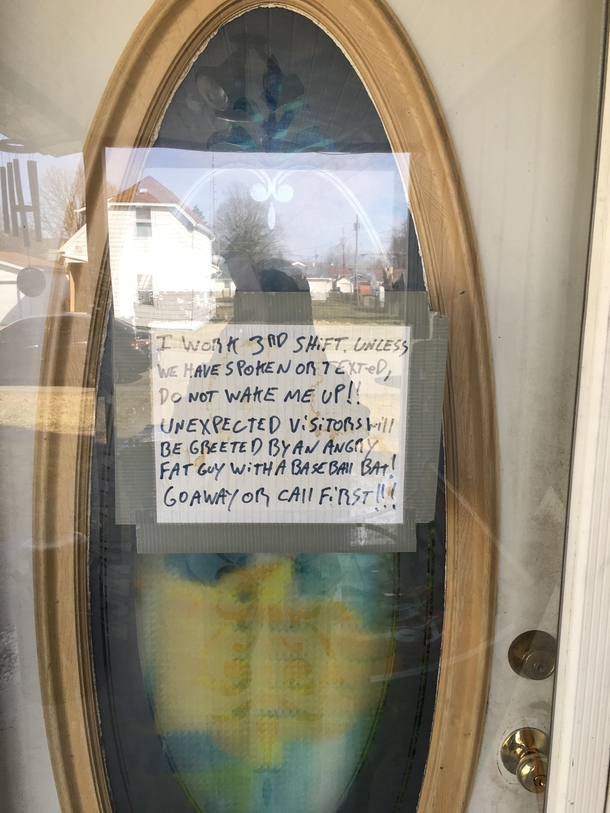 I WORK 3RD SHIFT. UNLESS
WE HAVE SPOKEN OR TEXTED,
DO NOT WAKE ME UP!!
UNEXPECTED VISITORS WILL
BE GREETED BY AN ANGRY
FAT GUY WITH A BASEBALL BAT!
GO AWAY OR CALL FIRST!!!